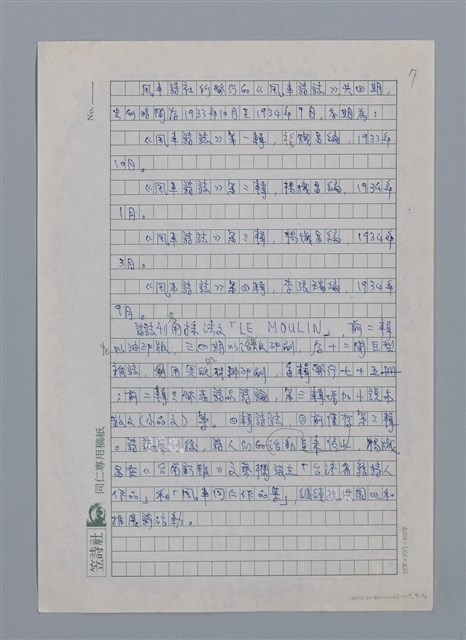 7
No.
風車詩社所發行的《風車詩誌》共四期,
發刊時間在1933年10月至1934年9月,各期為:
《風車詩誌》第一輯,楊熾昌編,1933年
10月。
《風車詩誌》第二輯,楊熾昌編,1934年
1月。
《風車詩誌》第三輯,楊熾昌編,1934年
3月。
《風車詩誌》第四輯,李張瑞編,1934年
9月。
詩誌刊名採法文「LE MOULIN」,前二輯
以油印版,三四期以活版印刷,為十二開日型
雜誌,每輯發行七十五冊
;前二輯以發表詩與詩論,第三輯增加小說與
散文(小品文)等。四輯詩誌,目前僅存第三輯
。詩誌停刊後,詩人們的活動並未停止,楊熾
昌在《台南新報》文藝欄設立「台灣省籍詩人
作品」和「風車同仁作品集」,繼續
推展詩活動。
笠詩社
同仁專用稿紙